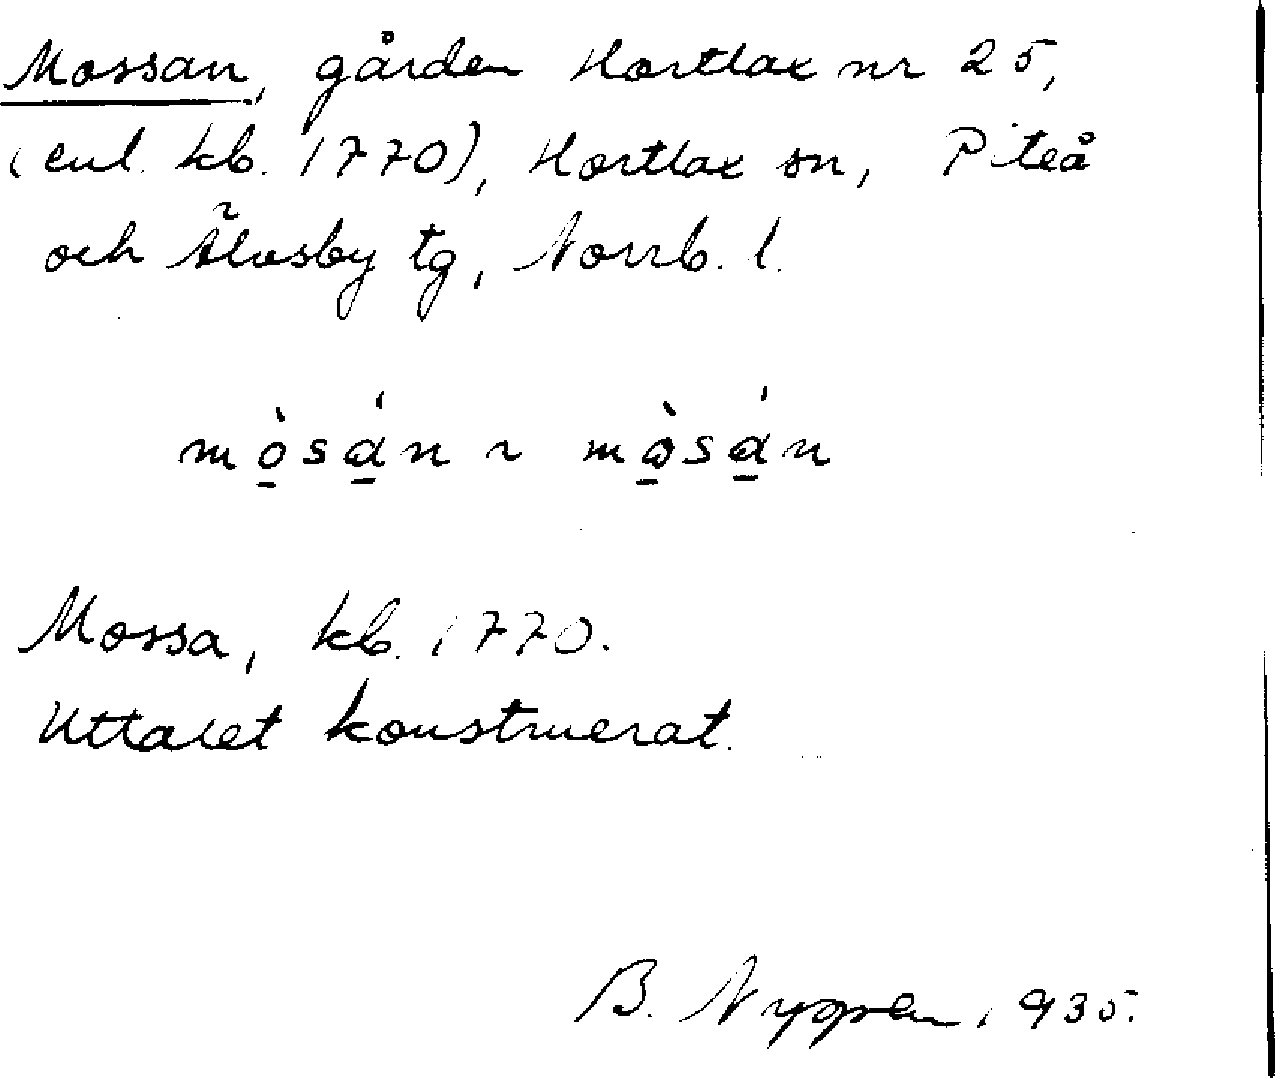 Mossan, gården Hortlax nr 25,
(enl. kb. 1770), Hortlax sn, Piteå
och Älvsby tg, Norrb. l.
mò̠sá̠n ~ mò̠sá̠n
Mossa, kb. 1770.
Uttalet konstruerat.
B. 1935.